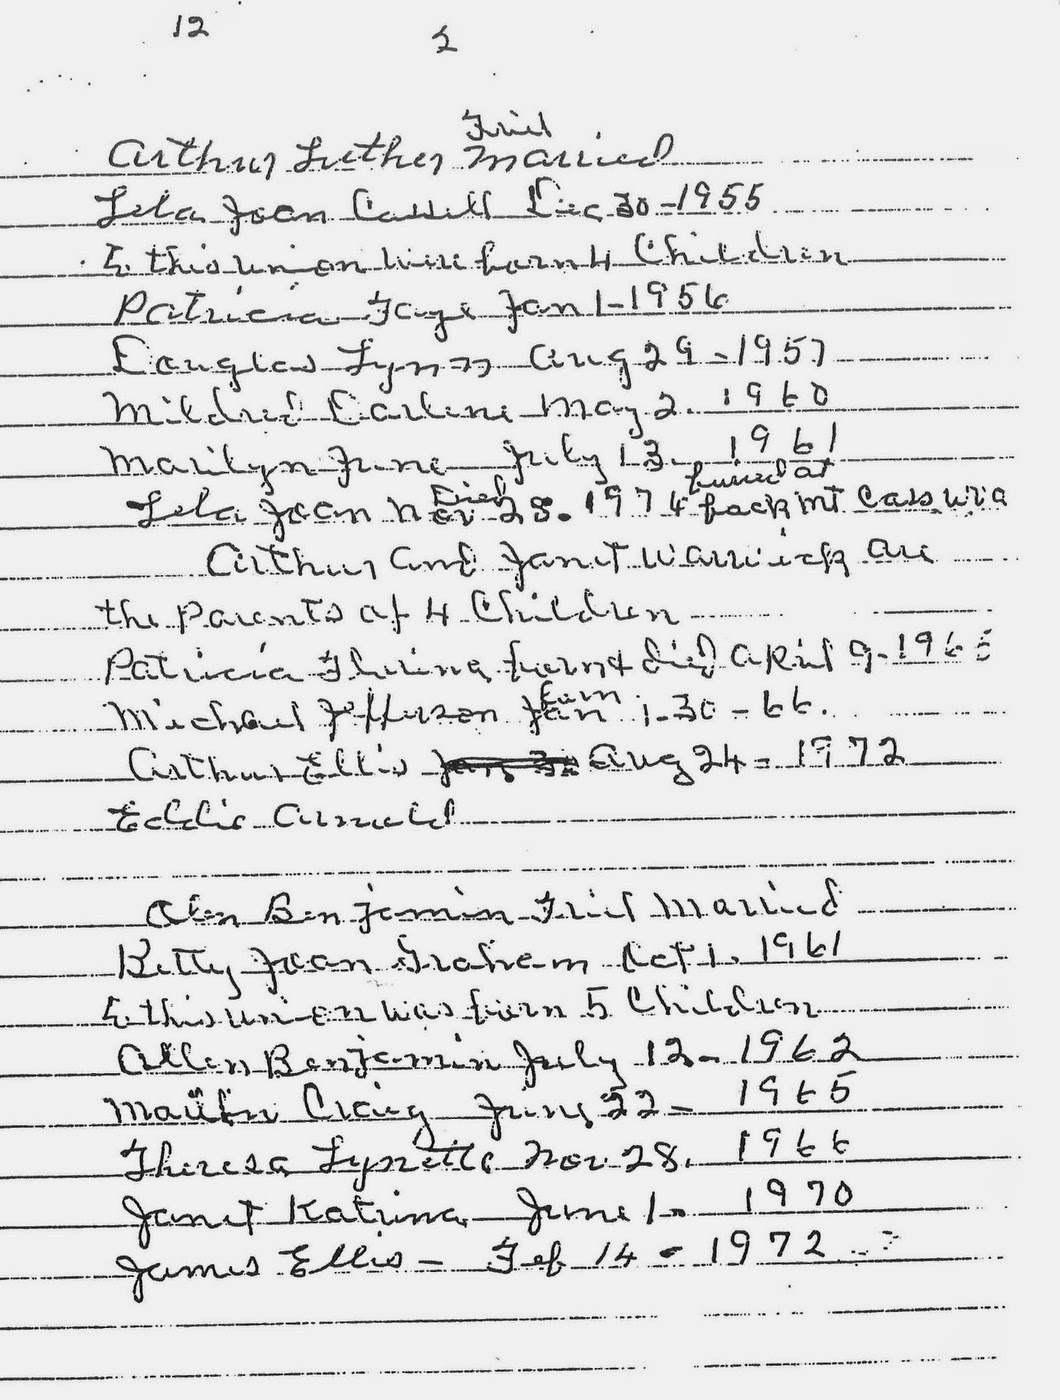 12
2
Friel
Arthur Luther Married
Lela Joan Cassell Dec 30-1955
to this union were born 4 Children
Patricia Faye Jan 1-1956
Douglas Lynn Aug 29-1957
Mildred Darlene May 2. 1960
Marilyn June July 13. 1961
Died buried at
Lela Joan Nov 28. 1974 back Mt Cass. W.Va
Arthur and Janet Warwick are
the Parents of 4 Children
Patricia born & died April 9-1965
born
Michael Jefferson Jan 1-30-66.
Arthur Ellis Aug 24-1972
Eddie Arnold
Alen Benjamin Friel Married
Betty Joan Graham Oct 1. 1961
to this union was born 5 Children
Allen Benjamin July 12-1962
Craig June 22-1965
Theresa Lynette Nov 28. 1966
Janet Katrina June 1. 1970
James Ellis-Feb 14-1972